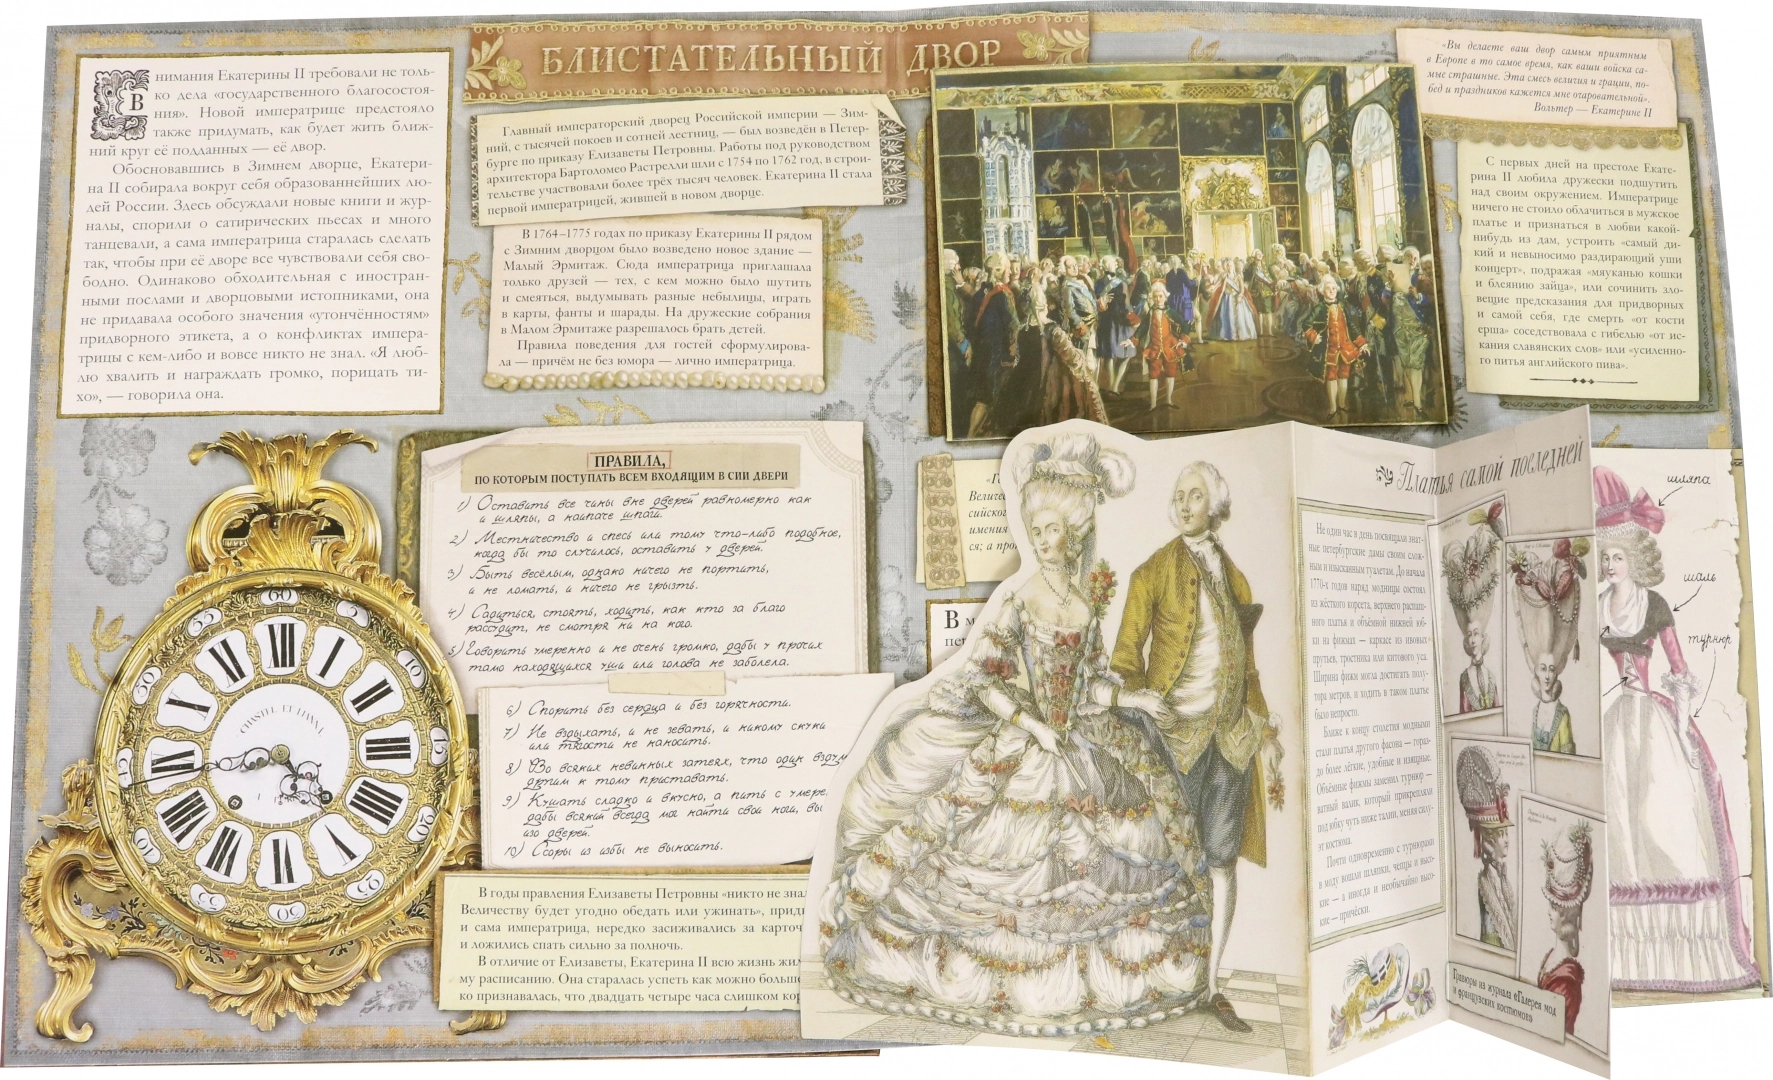 БЛИСТАТЕЛЬНЫЙ ДВОР
Внимания Екатерины II требовали не толь-
ко дела «государственного благосостоя-
ния». Новой императрице предстояло
также придумать, как будет жить ближ-
ний круг её подданных — её двор.
Обосновавшись в Зимнем дворце, Екатери-
на II собирала вокруг себя образованнейших лю-
дей России. Здесь обсуждали новые книги и жур-
налы, спорили о сатирических пьесах и много
танцевали, а сама императрица старалась сделать
так, чтобы при её дворе все чувствовали себя сво-
бодно. Одинаково обходительная с иностран-
ными послами и дворцовыми истопниками, она
не придавала особого значения «утончённостям»
придворного этикета, а о конфликтах импера-
трицы с кем-либо и вовсе никто не знал. «Я люб-
лю хвалить и награждать громко, порицать ти-
хо», — говорила она.
Главный императорский дворец Российской империи — Зим-
ний, с тысячей покоев и сотней лестниц, — был возведён в Петер-
бурге по приказу Елизаветы Петровны. Работы под руководством
архитектора Бартоломео Растрелли шли с 1754 по 1762 год, в строи-
тельстве участвовали более трёх тысяч человек. Екатерина II стала
первой императрицей, жившей в новом дворце.
В 1764–1775 годах по приказу Екатерины II рядом
с Зимним дворцом было возведено новое здание —
Малый Эрмитаж. Сюда императрица приглашала
только друзей — тех, с кем можно было шутить
и смеяться, выдумывать разные небылицы, играть
в карты, фанты и шарады. На дружеские собрания
в Малом Эрмитаже разрешалось брать детей.
Правила поведения для гостей сформулирова-
ла — причём не без юмора — лично императрица.
«Вы делаете ваш двор самым приятным
в Европе в то самое время, как ваши войска са-
мые страшные. Эта смесь величия и грации, по-
бед и праздников кажется мне очаровательной».
Вольтер — Екатерине II
С первых дней на престоле Екате-
рина II любила дружески подшутить
над своим окружением. Императрице
ничего не стоило облачиться в мужское
платье и признаться в любви какой-
нибудь из дам, устроить «самый ди-
кий и невыносимо раздирающий уши
концерт», подражая «мяуканью кошки
и блеянию зайца», или сочинить зло-
вещие предсказания для придворных
и самой себя, где смерть «от кости
ерша» соседствовала с гибелью «от ис-
кания славянских слов» или «усиленно-
го питья английского пива».
ПРАВИЛА,
ПО КОТОРЫМ ПОСТУПАТЬ ВСЕМ ВХОДЯЩИМ В СИИ ДВЕРИ
1) Оставить все чины вне дверей равномерно как
и шляпы, а наипаче шпаги.
2) Местничество и спесь или тому что-либо подобное,
когда бы то случилось, оставить у дверей.
3) Быть весёлым, однако ничего не портить,
и не ломать, и ничего не грызть.
4) Садиться, стоять, ходить, как кто за благо
рассудит, не смотря ни на кого.
5) Говорить умеренно и не очень громко, дабы у прочих
тамо находящихся уши или голова не заболела.
6) Спорить без сердца и без горячности.
7) Не вздыхать, и не зевать, и никому скуки
или тягости не наносить.
8) Во всяких невинных затеях, что один вздум
другим к тому приставать.
9) Кушать сладко и вкусно, а пить с умере,
дабы всякий всегда мог найти свои ноги, вы
изо дверей.
10) Ссоры из избы не выносить.
В годы правления Елизаветы Петровны «никто не знал
Величеству будет угодно обедать или ужинать», придв
и сама императрица, нередко засиживались за карточ
и ложились спать сильно за полночь.
В отличие от Елизаветы, Екатерина II всю жизнь жил
му расписанию. Она старалась успеть как можно больше
ко признавалась, что двадцать четыре часа слишком кор
60 5 10 15 20 25 30 35 40 45 50 55
XII I II III IIII V VI VII VIII IX X XI
Величес
сийског
имения
ся; а про
В м
пер
Платья самой последней
Не один час в день посвящали знат-
ные петербургские дамы своим слож-
ным и изысканным туалетам. До начала
1770-х годов наряд модницы состоял
из жёсткого корсета, верхнего распаш-
ного платья и объёмной нижней юб-
ки на фижмах — каркасе из ивовых
прутьев, тростника или китового уса.
Ширина фижм могла достигать полу-
тора метров, и ходить в таком платье
было непросто.
Ближе к концу столетия модными
стали платья другого фасона — гораз-
до более лёгкие, удобные и изящные.
Объёмные фижмы заменил турнюр —
ватный валик, который прикрепляли
под юбку чуть ниже талии, меняя силу-
эт костюма.
Почти одновременно с турнюрами
в моду вошли шляпки, чепцы и высо-
кие — а иногда и необычайно высо-
кие — причёски.
Гравюры из журнала «Галерея мод
и французских костюмов»
шляпа
шаль
турнюр